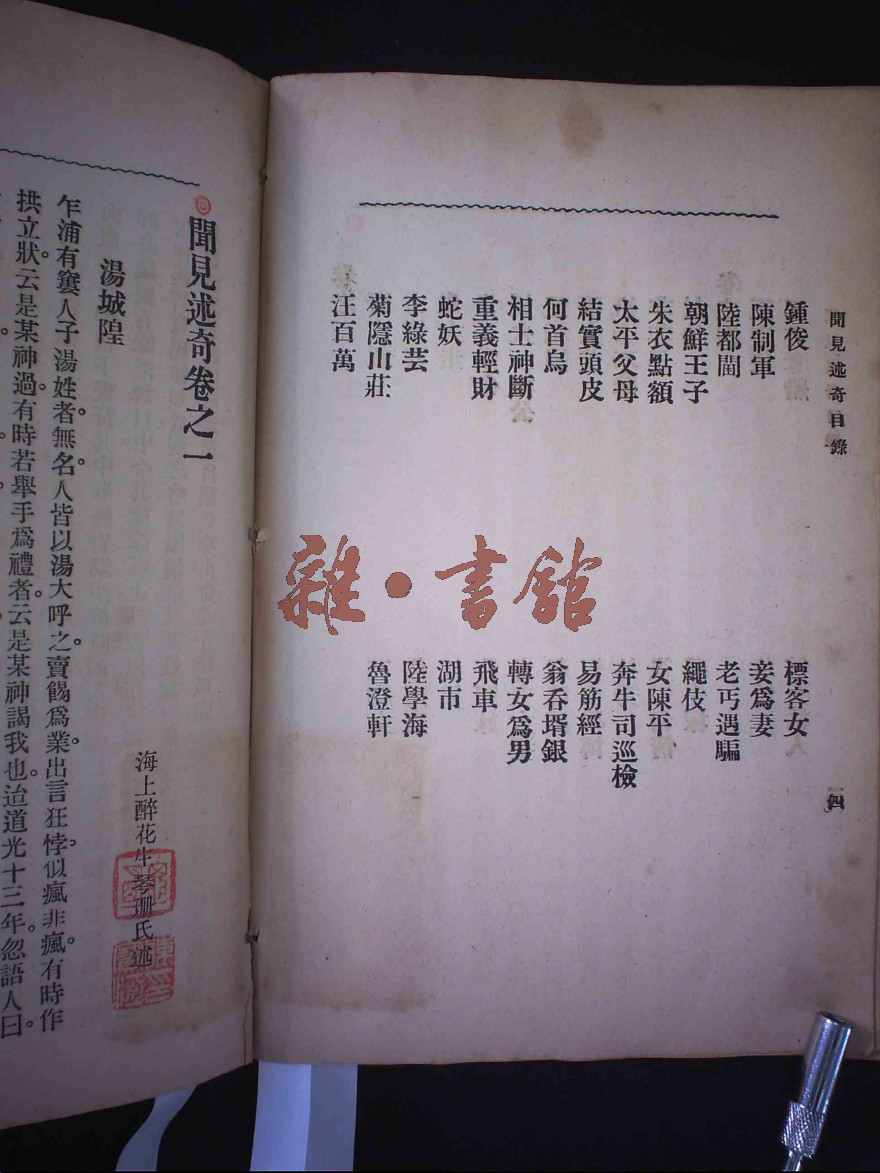 聞見述奇目錄
四
鍾俊
陳制軍
陸都閫
朝鮮王子
朱衣點額
太平父母
結實頭皮
何首烏
相士神斷
重義輕財
蛇妖
李綠芸
菊隱山莊
汪百萬
標客女
妾為妻
老丐遇騙
繩伎
女陳平
奔牛司巡檢
易筋經
翁吞壻銀
轉女為男
飛車
湖市
陸學海
魯澄軒
雜·書館
聞見述奇卷之一
海上醉花生琴珊氏述
湯城隍
乍浦有窶人子湯姓者無名。人皆以湯大呼之。賣餳為業。出言狂悖。似瘋非瘋。有時作
拱立狀。云是某神過。有時若舉手為禮者。云是某神謁我也。迨道光十三年。忽語人曰。